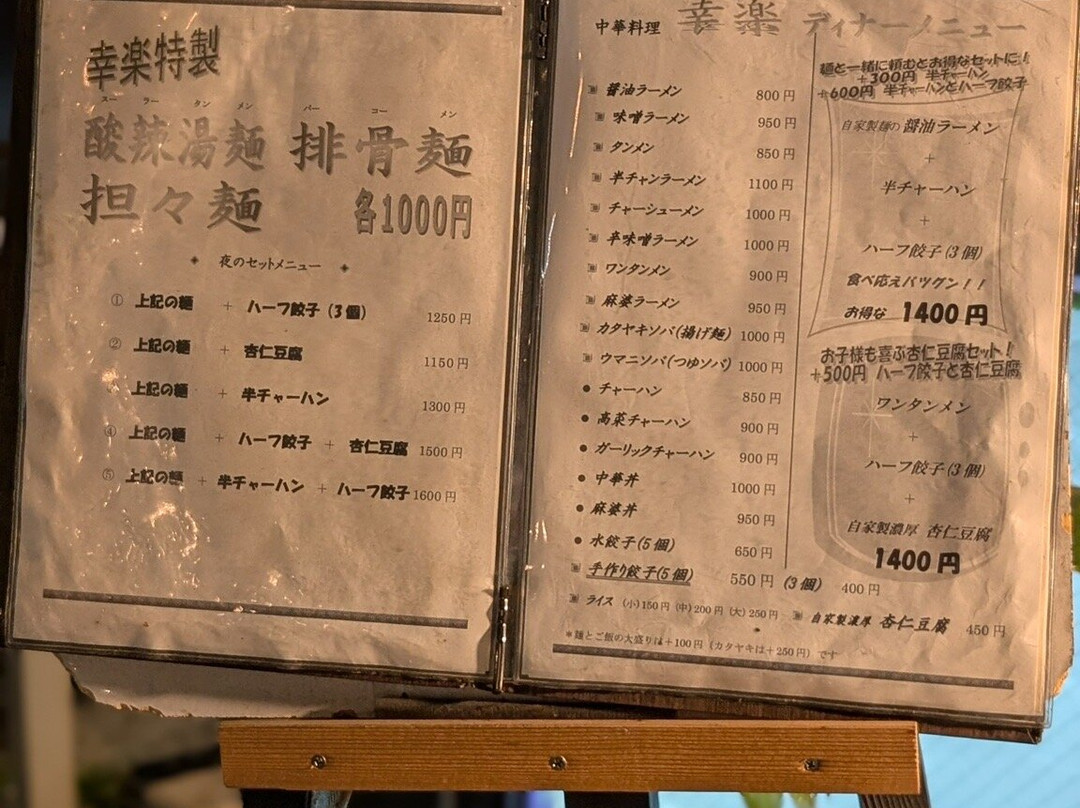 幸楽特製
スー ラー タン メン パー コー メン
酸辣湯麺 排骨麺
担々麺 各1000円
夜のセットメニュー
① 上記の麺 + ハーフ餃子(3個) 1250円
② 上記の麺 + 杏仁豆腐 1150円
③ 上記の麺 + 半チャーハン 1300円
④ 上記の麺 + ハーフ餃子 + 杏仁豆腐 1500円
⑤ 上記の麺 + 半チャーハン + ハーフ餃子 1600円
中華料理 幸楽 ディナーメニュー
醤油ラーメン 800円
味噌ラーメン 950円
タンメン 850円
半チャンラーメン 1100円
チャーシューメン 1000円
辛味噌ラーメン 1000円
ワンタンメン 900円
麻婆ラーメン 950円
カタヤキソバ(揚げ麺) 1000円
ウマニソバ(つゆソバ) 1000円
● チャーハン 850円
●高菜チャーハン 900円
● ガーリックチャーハン 900円
● 中華丼 1000円
● 麻婆丼 950円
● 水餃子(5個) 650円
手作り餃子(5個) 550円 (3個) 400円
ライス (小)150円 (中)200円 (大)250円 自家製濃厚 杏仁豆腐 450円
*麺とご飯の大盛りは+100円(カタヤキは+250円)です
麺と一緒に頼むとお得なセットに!
+300円 半チャーハン
+600円 半チャーハンとハーフ餃子
自家製麺の醤油ラーメン
+
半チャーハン
+
ハーフ餃子(3個)
食べ応えバツグン!!
お得な 1400円
お子様も喜ぶ杏仁豆腐セット!
+500円 ハーフ餃子と杏仁豆腐
ワンタンメン
+
ハーフ餃子(3個)
+
自家製濃厚 杏仁豆腐
1400円